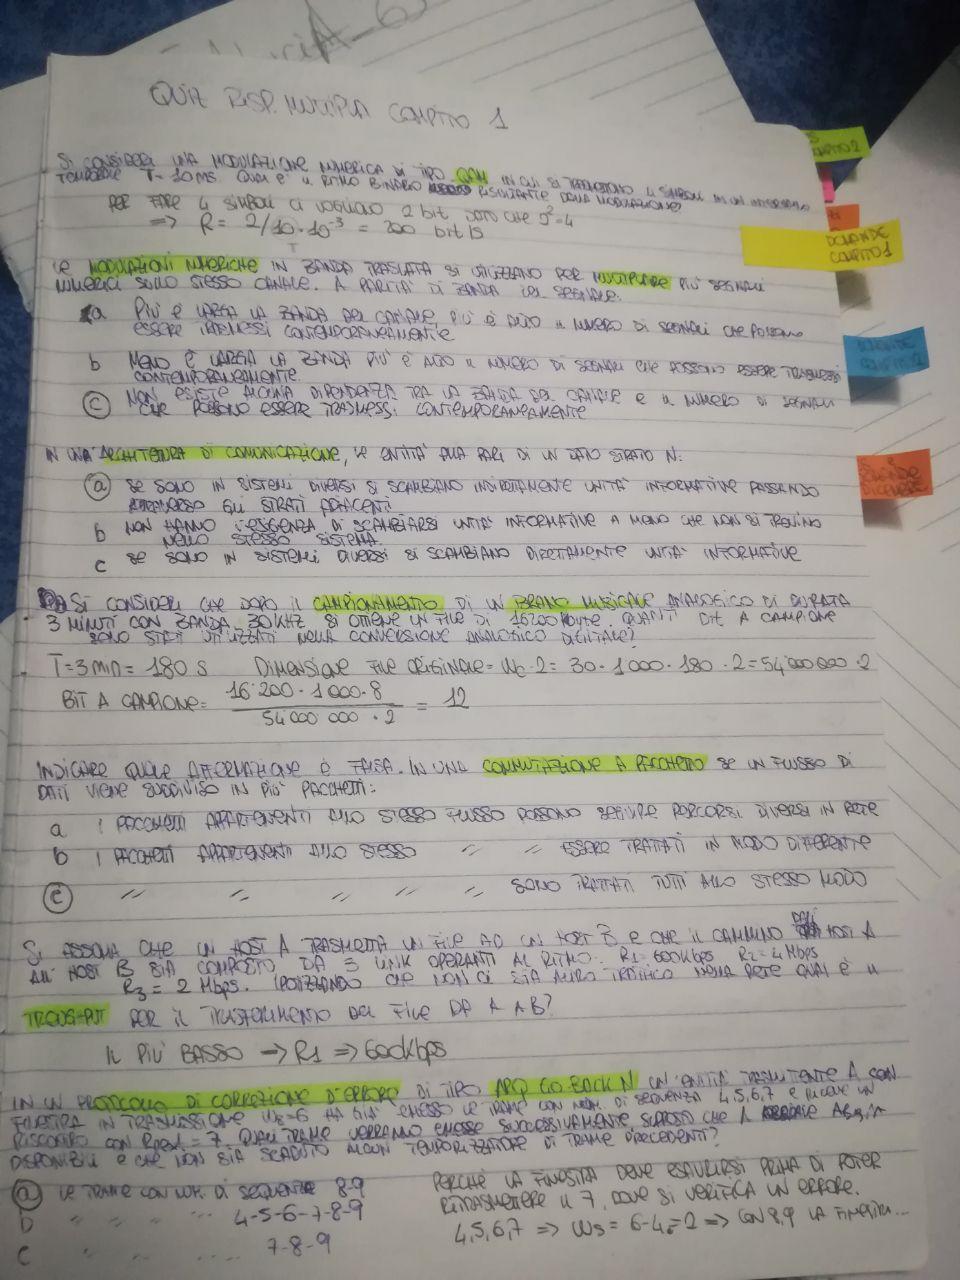 QUIZ RISP. MULTIPLA COMPITO 1
SI CONSIDERI UNA MODULAZIONE NUMERICA DI TIPO QAM IN CUI SI TRASMETTONO 4 SIMBOLI IN UN INTERVALLO
TEMPORALE T= 10 ms. QUAL È IL RITMO BINARIO RISULTANTE DELLA MODULAZIONE?
PER FARE 4 SIMBOLI CI VOGLIONO 2 bit DATO CHE 2²=4
=> R = 2/10·10⁻³ = 200 bit/s
T
LE MODULAZIONI NUMERICHE IN BANDA TRASLATA SI UTILIZZANO PER MULTIPLARE PIÙ SEGNALI
NUMERICI SULLO STESSO CANALE. A PARITÀ DI BANDA DEL SEGNALE:
a PIÙ È LARGA LA BANDA DEL CANALE, PIÙ È ALTO IL NUMERO DI SEGNALI CHE POSSONO
ESSERE TRASMESSI CONTEMPORANEAMENTE
b MENO È LARGA LA BANDA PIÙ È ALTO IL NUMERO DI SEGNALI CHE POSSONO ESSERE TRASMESSI
CONTEMPORANEAMENTE
c NON ESISTE ALCUNA DIPENDENZA TRA LA BANDA DEL CANALE E IL NUMERO DI SEGNALI
CHE POSSONO ESSERE TRASMESSI CONTEMPORANEAMENTE
IN UNA ARCHITETTURA DI COMUNICAZIONE, LE ENTITÀ ALLA PARI DI UN DATO STRATO N:
a SE SONO IN SISTEMI DIVERSI SI SCAMBIANO INDIRETTAMENTE UNITÀ INFORMATIVE PASSANDO
ATTRAVERSO GLI STRATI ADIACENTI
b NON HANNO L'ESIGENZA DI SCAMBIARSI UNITÀ INFORMATIVE A MENO CHE NON SI TROVINO
NELLO STESSO SISTEMA
c SE SONO IN SISTEMI DIVERSI SI SCAMBIANO DIRETTAMENTE UNITÀ INFORMATIVE
SI CONSIDERI CHE DOPO IL CAMPIONAMENTO DI UN BRANO MUSICALE ANALOGICO DI DURATA
3 MINUTI CON BANDA 30 KHZ SI OTTIENE UN FILE DI 16200 Kbyte. QUANTI bit A CAMPIONE
SONO STATI UTILIZZATI NELLA CONVERSIONE ANALOGICO DIGITALE?
T=3 min = 180 s DIMENSIONE FILE ORIGINALE = Nc·2 = 30·1000·180·2 = 54'000'000·2
BIT A CAMPIONE = 16'200·1000·8 / 54'000'000·2 = 12
INDICARE QUALE AFFERMAZIONE È FALSA. IN UNA COMMUTAZIONE A PACCHETTO SE UN FLUSSO DI
DATI VIENE SUDDIVISO IN PIÙ PACCHETTI:
a I PACCHETTI APPARTENENTI ALLO STESSO FLUSSO POSSONO SEGUIRE PERCORSI DIVERSI IN RETE
b I PACCHETTI APPARTENENTI ALLO STESSO " " ESSERE TRATTATI IN MODO DIFFERENTE
c " " " " " SONO TRATTATI TUTTI ALLO STESSO MODO
SI ASSUMA CHE UN HOST A TRASMETTA UN FILE AD UN HOST B E CHE IL CAMMINO DALL' HOST A
ALL' HOST B SIA COMPOSTO DA 3 LINK OPERANTI AL RITMO: R1= 600Kbps R2= 4 Mbps
R3 = 2 Mbps. IPOTIZZANDO CHE NON CI SIA ALTRO TRAFFICO NELLA RETE QUAL È IL
TROUGHPUT PER IL TRASFERIMENTO DEL FILE DA A A B?
IL PIÙ BASSO → R1 => 600Kbps
IN UN PROTOCOLLO DI CORREZIONE D'ERRORE DI TIPO ARQ GO BACK N UN'ENTITÀ TRASMITTENTE A CON
FINESTRA IN TRASMISSIONE Ws=6 HA GIÀ EMESSO LE TRAME CON NUM. DI SEQUENZA 4,5,6,7 E RICEVE UN
RISCONTRO CON = 7. QUALI TRAME VERRANNO EMESSE SUCCESSIVAMENTE, SUPPOSTO CHE A
DISPONIBILI E CHE NON SIA SCADUTO ALCUN TEMPORIZZATORE DI TRAME PRECEDENTI?
a LE TRAME CON NUM. DI SEQUENZA 8-9
b " " " .... 4-5-6-7-8-9
c " " .... 7-8-9
PERCHÉ LA FINESTRA DEVE ESAURIRSI PRIMA DI POTER
RITRASMETTERE IL 7, DOVE SI VERIFICA UN ERRORE.
4,5,6,7 => Ws = 6-4=2 => CON 8,9 LA FINESTRA...
COMPITO 2
DOMANDE
COMPITO 1
DICEMBRE